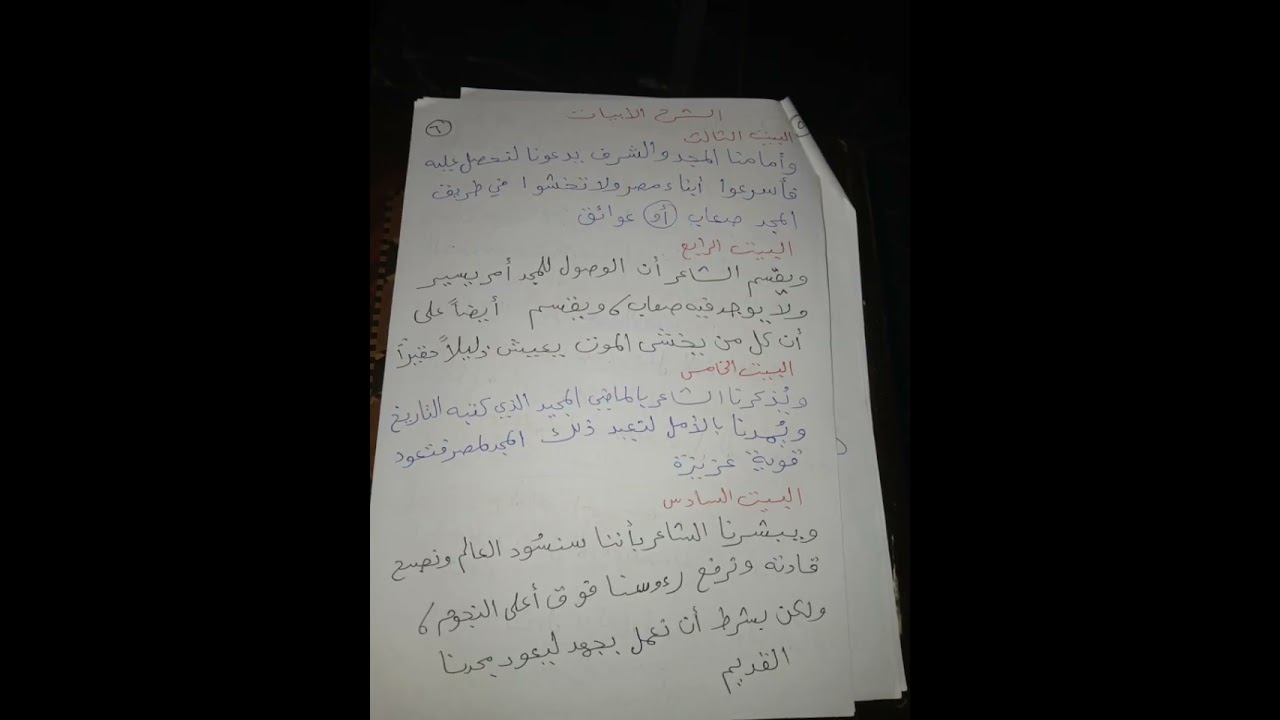 الشرح الابيات
٦
البيت الثالث
وأمامنا المجد والشرف يدعونا لنحصل عليه
فأسرعوا أبناء مصر ولا تخشوا في طريق
المجد صعاب أو عوائق
البيت الرابع
ويقسم الشاعر أن الوصول للمجد أمر يسير
ولا يوجد فيه صعاب، ويقسم أيضاً على
أن كل من يخشى الموت يعيش ذليلاً حقيراً
البيت الخامس
ويُذكرنا الشاعر بالماضي المجيد الذي كتبه التاريخ
ويُمدنا بالأمل لنعيد ذلك المجد لمصر فتعود
قوية عزيزة
البيت السادس
ويبشرنا الشاعر بأننا سنسُود العالم ونصبح
قادته ونرفع رءوسنا فوق أعلى النجوم،
ولكن بشرط أن نعمل بجهد ليعود مجدنا
القديم